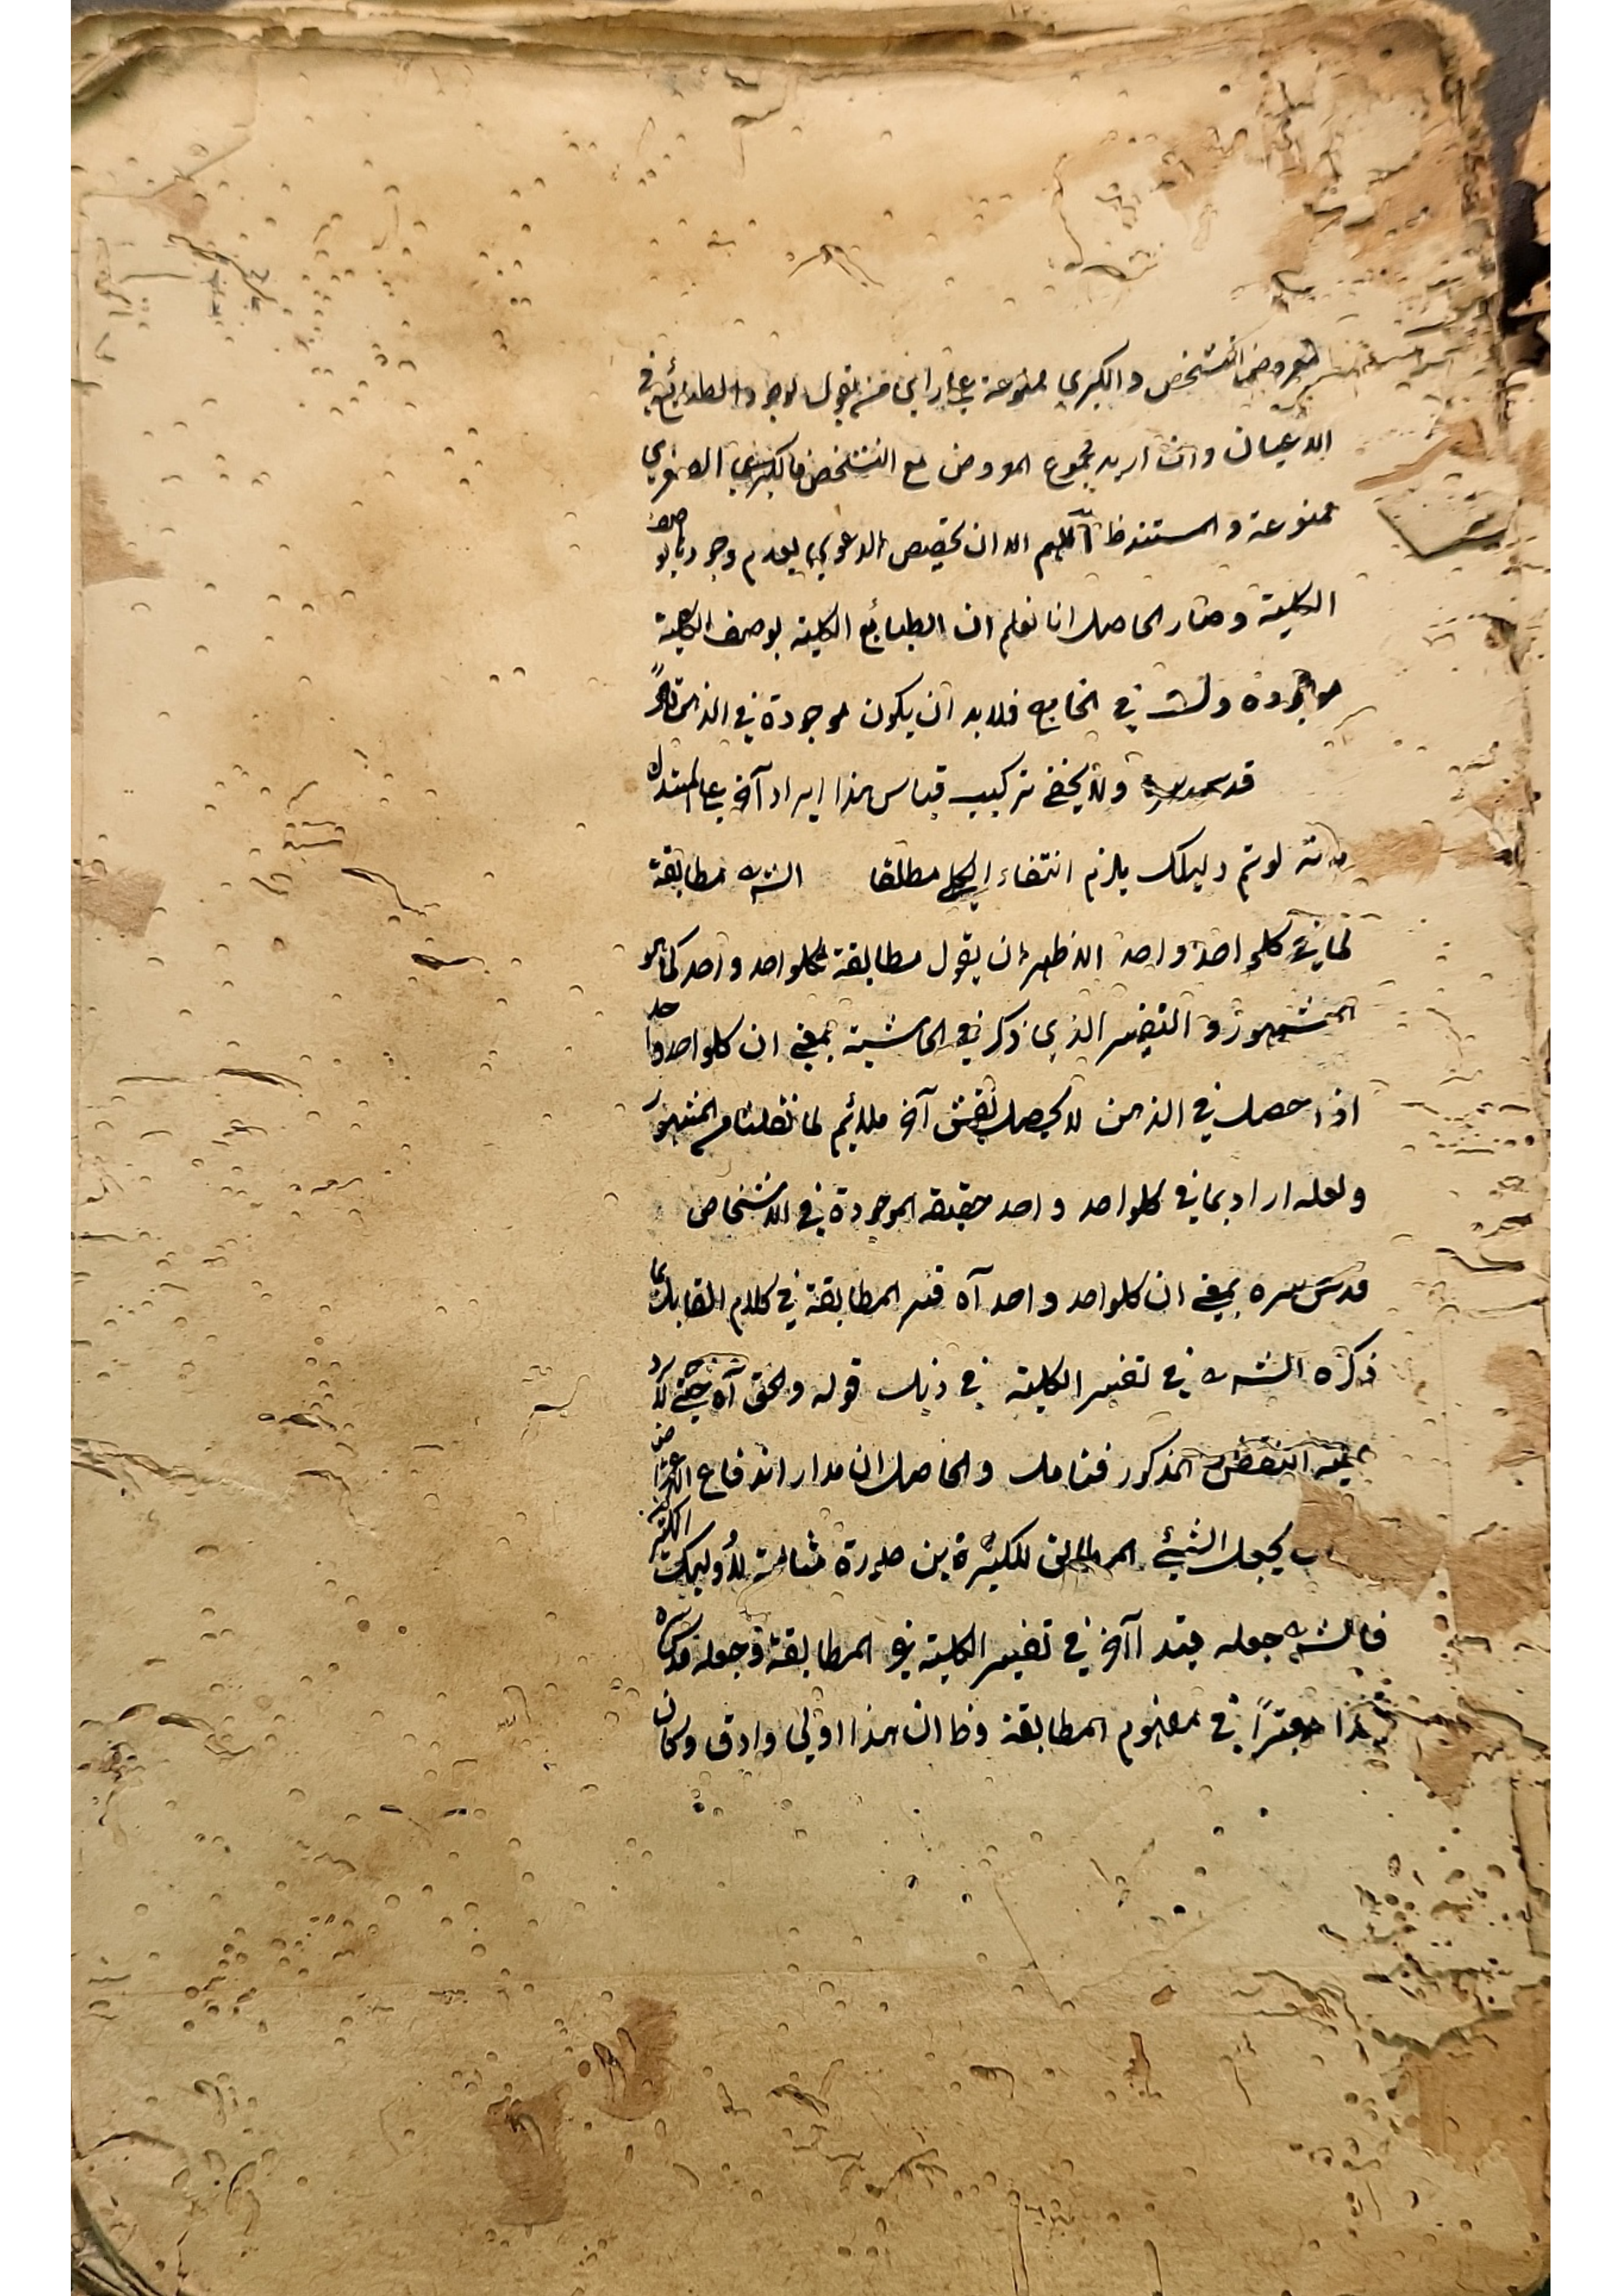 معروض التشخص والكبرى ممنوعة على راى من يقول بوجود الطبائع فى
الاعيان وان اريد مجموع المعروض مع التشخص فالكبرى الصغرى
ممنوعة والمستند ظ اللهم الا ان تخصيص الدعوى بعدم وجودها بوصف
الكلية وصار الحاصل انا نعلم ان الطبايع الكلية بوصف الكلية
موجودة وليست فى الخارج فلابد ان يكون موجودة فى الذهن
قدس سره ولا يخفى تركيب قياس هذا ايراد آخر على المستدل
بانه لو تم دليلك يلزم انتفاء الكلى مطلقا الش مطابقة
لما فى كلواحد واحد الاظهر ان يقول مطابقة لكلواحد واحد كما هو
المشهور و التفسير الذى ذكر فى الحاشية بمعنى ان كلواحد واحد
اذا حصل فى الذهن لا يحصل نقش آخر ملائم لما نقلنا من المشهور
ولعله اراد بما فى كلواحد واحد حقيقه الموجودة فى الاشخاص
قدس سره بمعنى ان كلواحد واحد آه فسر المطابقة فى كلام القايل بما
ذكره الش فى تفسير الكلية فى ذيل قوله والحق آه حتى لا يرد
عليه النقض المذكور فتامل والحاصل ان مدار اندفاع الاعتراض
بجعل الشئ المطابق للكثيرة بين صورة
فالش جعله قيدا آخر فى تفسير الكلية غير المطابقة وجعله قدس سره
هذا معتبرًا فى مفهوم المطابقة وظ ان هذا اولى وادق وكان